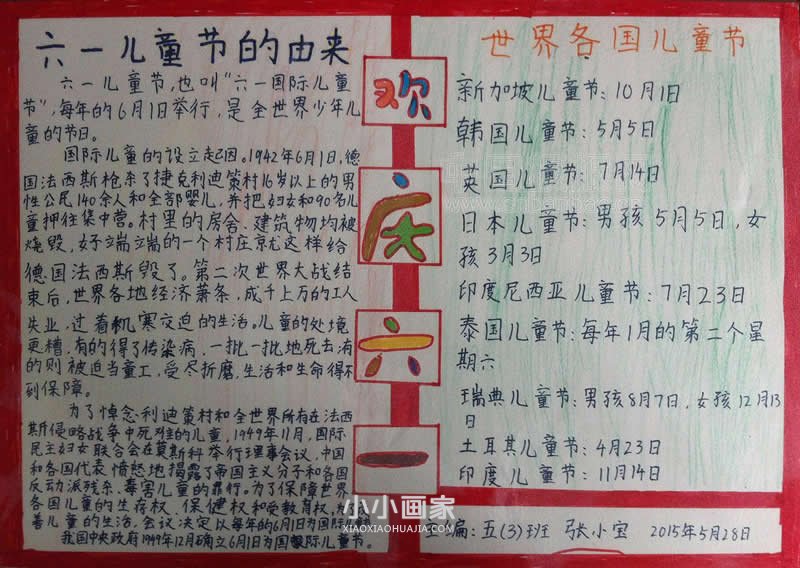 六一儿童节的由来
六一儿童节,也叫"六一国际儿童
节",每年的6月1日举行,是全世界少年儿
童的节日。
国际儿童的设立起因。1942年6月1日,德
国法西斯枪杀了捷克利迪策村16岁以上的男
性公民140余人和全部婴儿,并把妇女和90名儿
童押往集中营。村里的房舍、建筑物均被
烧毁,好端端的一个村庄就这样给
德国法西斯毁了。第二次世界大战结
束后,世界各地经济萧条,成千上万的工人
失业,过着饥寒交迫的生活。儿童的处境
更糟,有的得了传染病,一批一批地死去;有
的则被迫当童工,受尽折磨,生活和生命得不
到保障。
为了悼念利迪策村和全世界所有在法西
斯侵略战争中死难的儿童,1949年11月,国际
民主妇女联合会在莫斯科举行理事会议,中国
和各国代表愤怒地揭露了帝国主义分子和各国
反动派残杀、毒害儿童的罪行。为了保障世界
各国儿童的生存权、保健权和受教育权,
善儿童的生活,会议决定以每年的6月1日为国际
我国中央政府1949年12月确立6月1日为国际儿童节。
欢
庆
六
一
世界各国儿童节
新加坡儿童节:10月1日
韩国儿童节:5月5日
英国儿童节:7月14日
日本儿童节:男孩5月5日,女
孩3月3日
印度尼西亚儿童节:7月23日
泰国儿童节:每年1月的第二个星
期六
瑞典儿童节:男孩8月7日,女孩12月13
日
土耳其儿童节:4月23日
印度儿童节:11月14日
主编:五(3)班 张小宝 2015年5月28日
小小画家
XIAOXIAOHUAJIA.COM